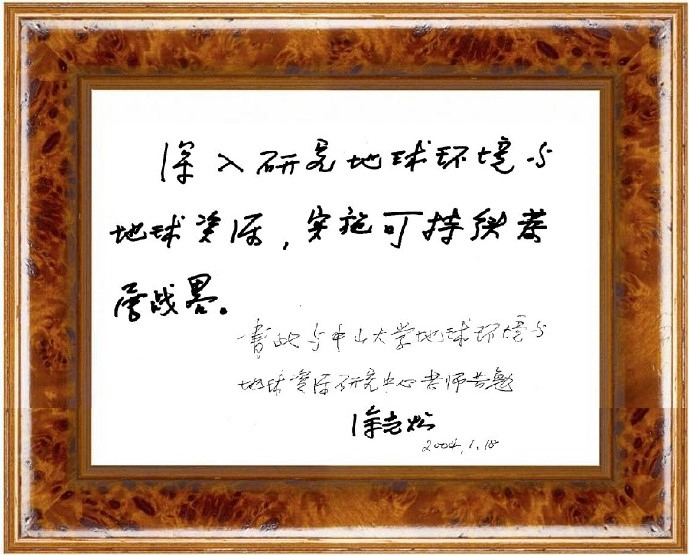 深入研究地球环境与
地球资源，实施可持续发
展战略。
书此与中山大学地球环境与
地球资源研究中心老师共勉
徐志松
2004.1.18